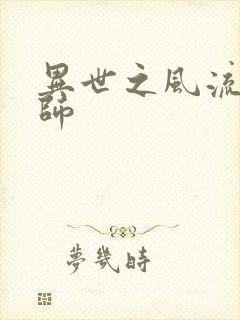 異世之風流
師
夢幾時